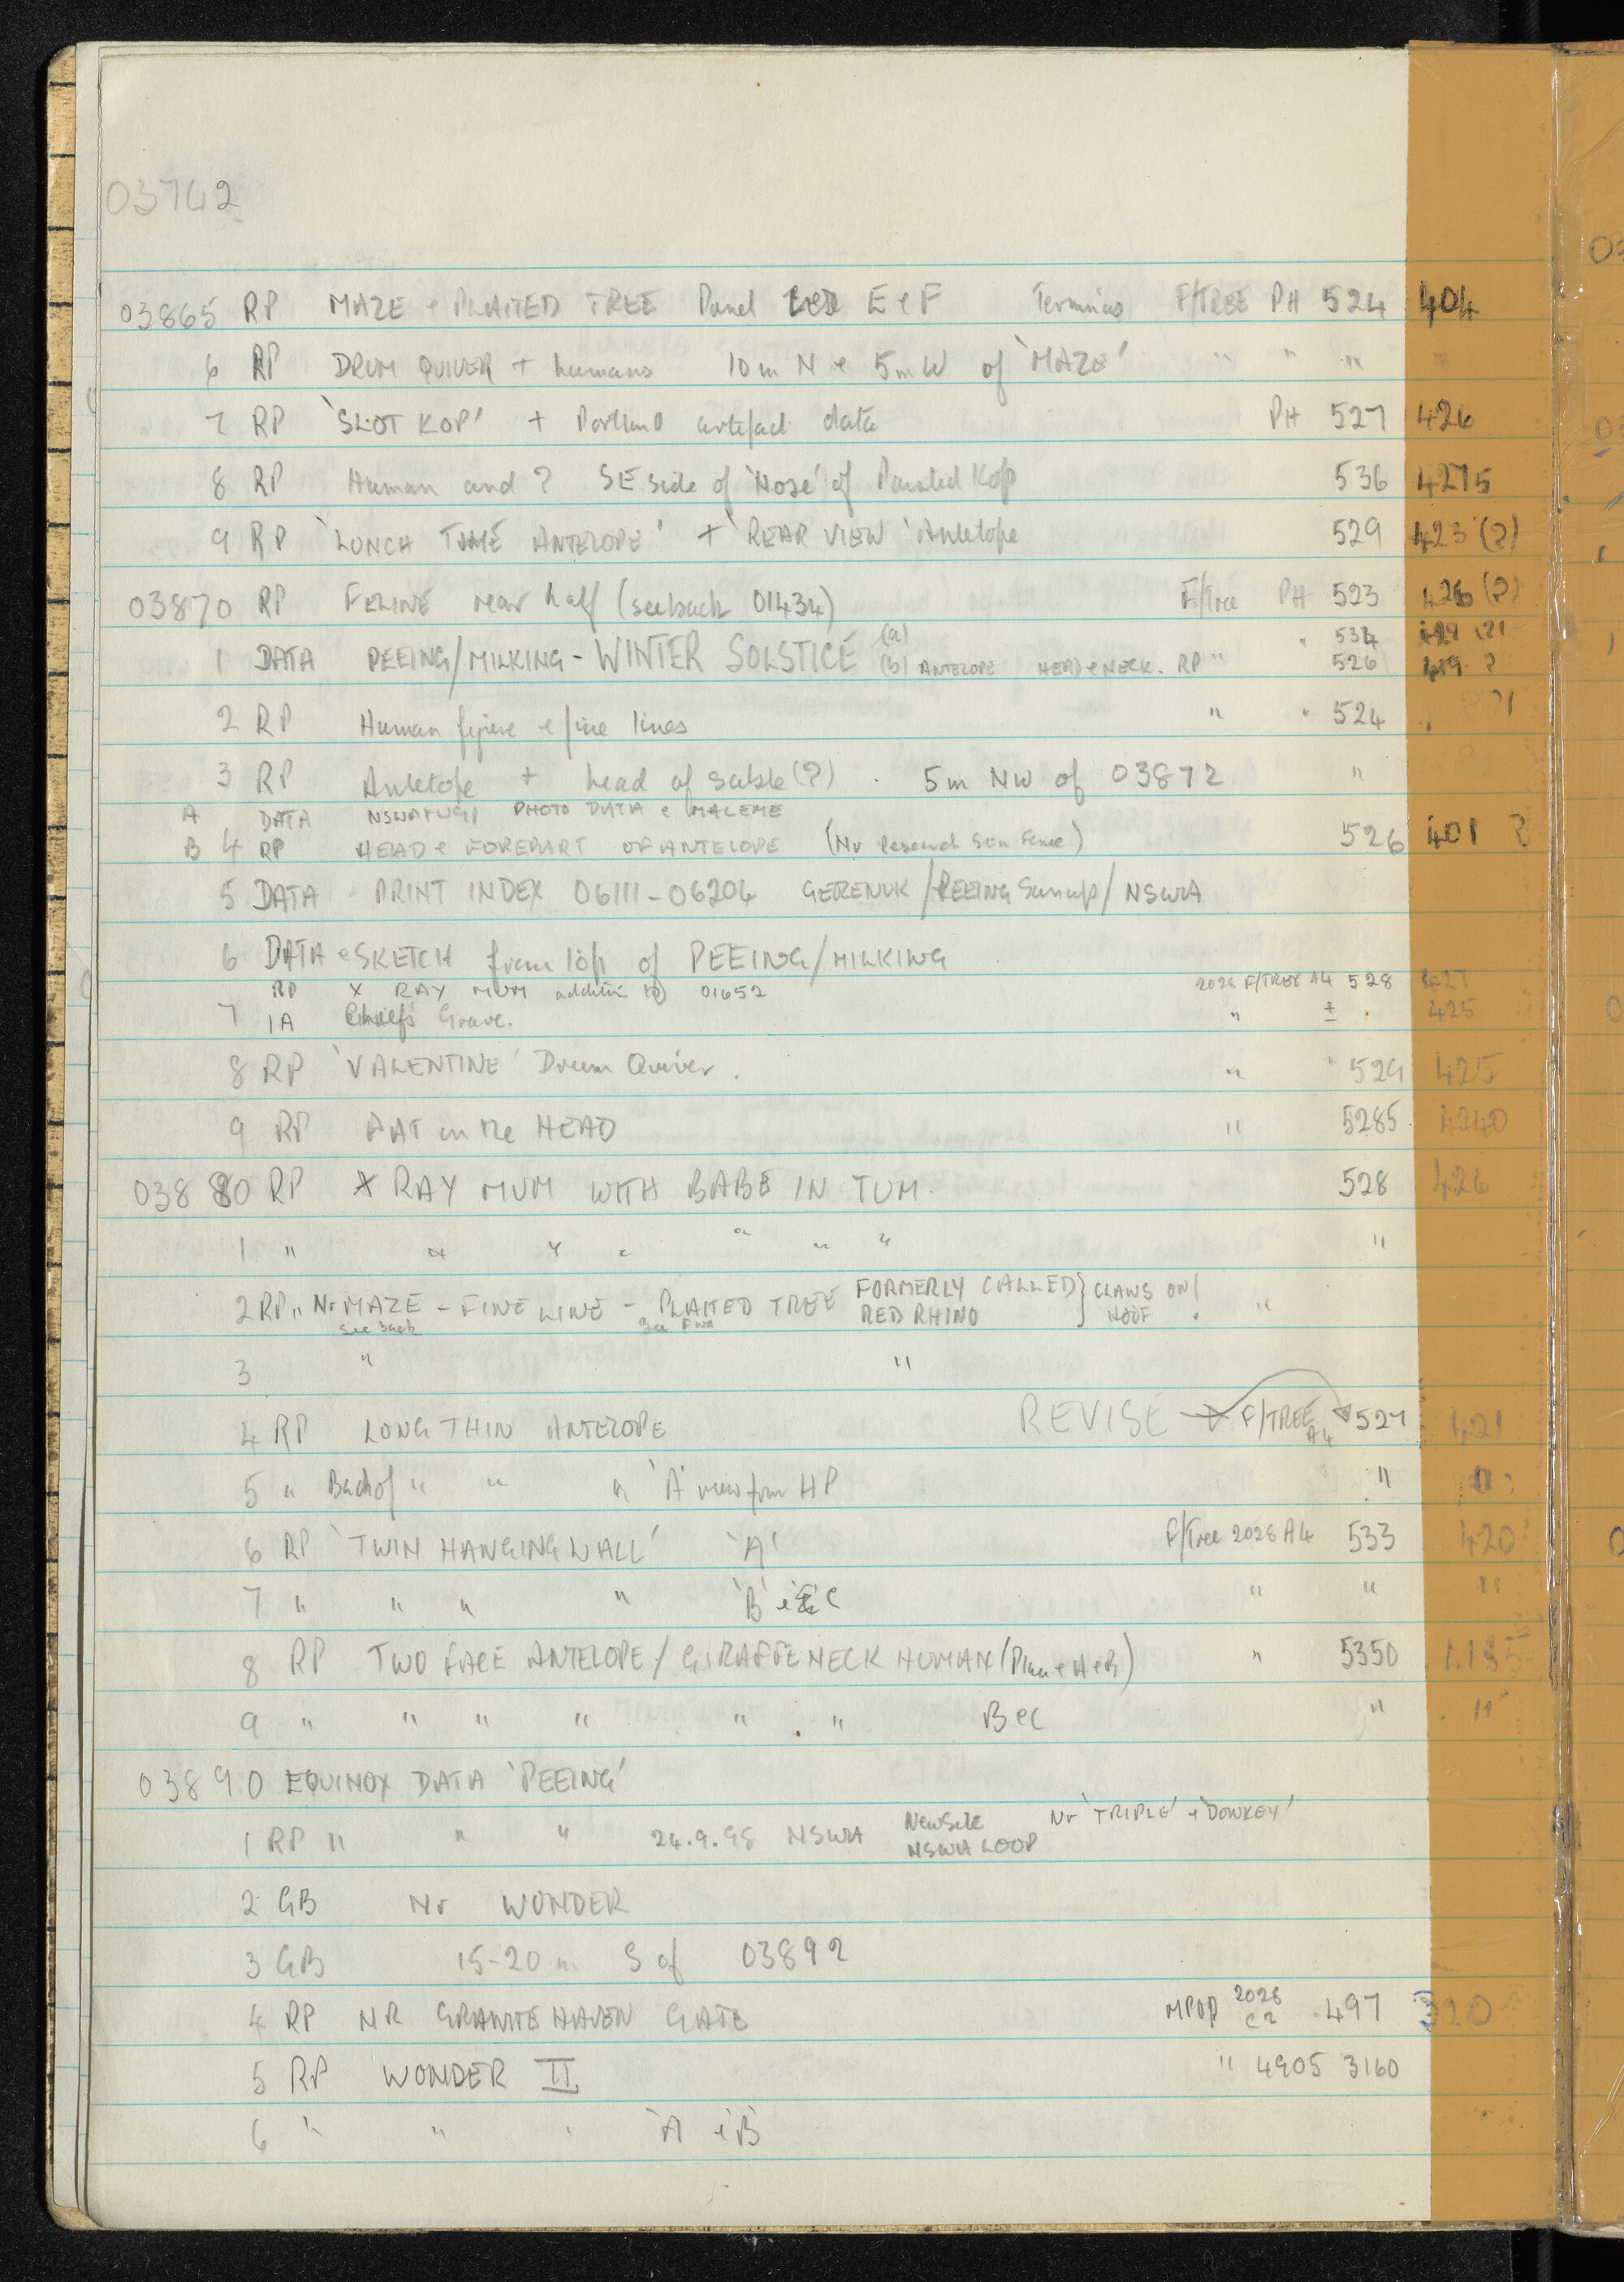 03742
03865 RP MAZE & PLAITED TREE Panel E & F Terminus F/TREE PH 524 404
6 RP DRUM QUIVER + humans 10m N & 5m W of 'MAZE' " " "
7 RP 'SLOT KOP' + Portland artefact data PH 527 426
8 RP Human and ? SE side of 'Nose' of Painted Kop 536 4275
9 RP 'LUNCH TIME ANTELOPE' + 'REAR VIEW' Antelope 529 423 (?)
03870 RP FELINE rear half (see back 01434) F/Tree PH 523 426 (?)
1 DATA PEEING/MILKING - WINTER SOLSTICE (a) " 534 429 (?)
(B) ANTELOPE HEAD & NECK. RP " 526 419 ?
2 RP Human figure & fine lines " " 524
3 RP Antelope + head of sable (?) . 5m NW of 03872 "
A DATA NSWATUGI PHOTO DATA & MALEME
B 4 RP HEAD & FOREPART OF ANTELOPE (Nr Research Stn Fence) 526 401 ?
5 DATA PRINT INDEX 06111-06204 GERENUK/PEEING Sunup/NSWA
6 DATA & SKETCH from top of PEEING/MILKING
RP X RAY MUM addition to 01652 2028 F/TREE A4 528 427
7 IA Chiefs Grave. " ± . 425
8 RP 'VALENTINE' Drum Quiver. " " 529 425
9 RP PAT on the HEAD " 5285 4240
03880 RP X RAY MUM WITH BABE IN TUM. 528 426
1 " " " " " " " "
2 RP " Nr MAZE - FINE LINE - PLAITED TREE FORMERLY CALLED RED RHINO } CLAWS ON HOOF ! "
see back see Fwd
3 " "
4 RP LONG THIN ANTELOPE REVISE → F/TREE A4 527 421
5 " Back of " " " 'A' view from HP " "
6 RP 'TWIN HANGING WALL' 'A' F/Tree 2028 A4 533 420
7 " " " " 'B' & C " " "
8 RP TWO FACE ANTELOPE/GIRAFFE NECK HUMAN (Plan & A & B) " 5350 418
9 " " " " " " B & C " "
03890 EQUINOX DATA 'PEEING'
1 RP " " " 24.9.98 NSWA New Site NSWA LOOP Nr 'TRIPLE' & 'DONKEY'
2 GB Nr WONDER
3 GB 15-20 m S of 03892
4 RP NR GRANITE HAVEN GATE MPOP 2028 C2 497 320
5 RP WONDER II " 4905 3160
6 " " " 'A & B'